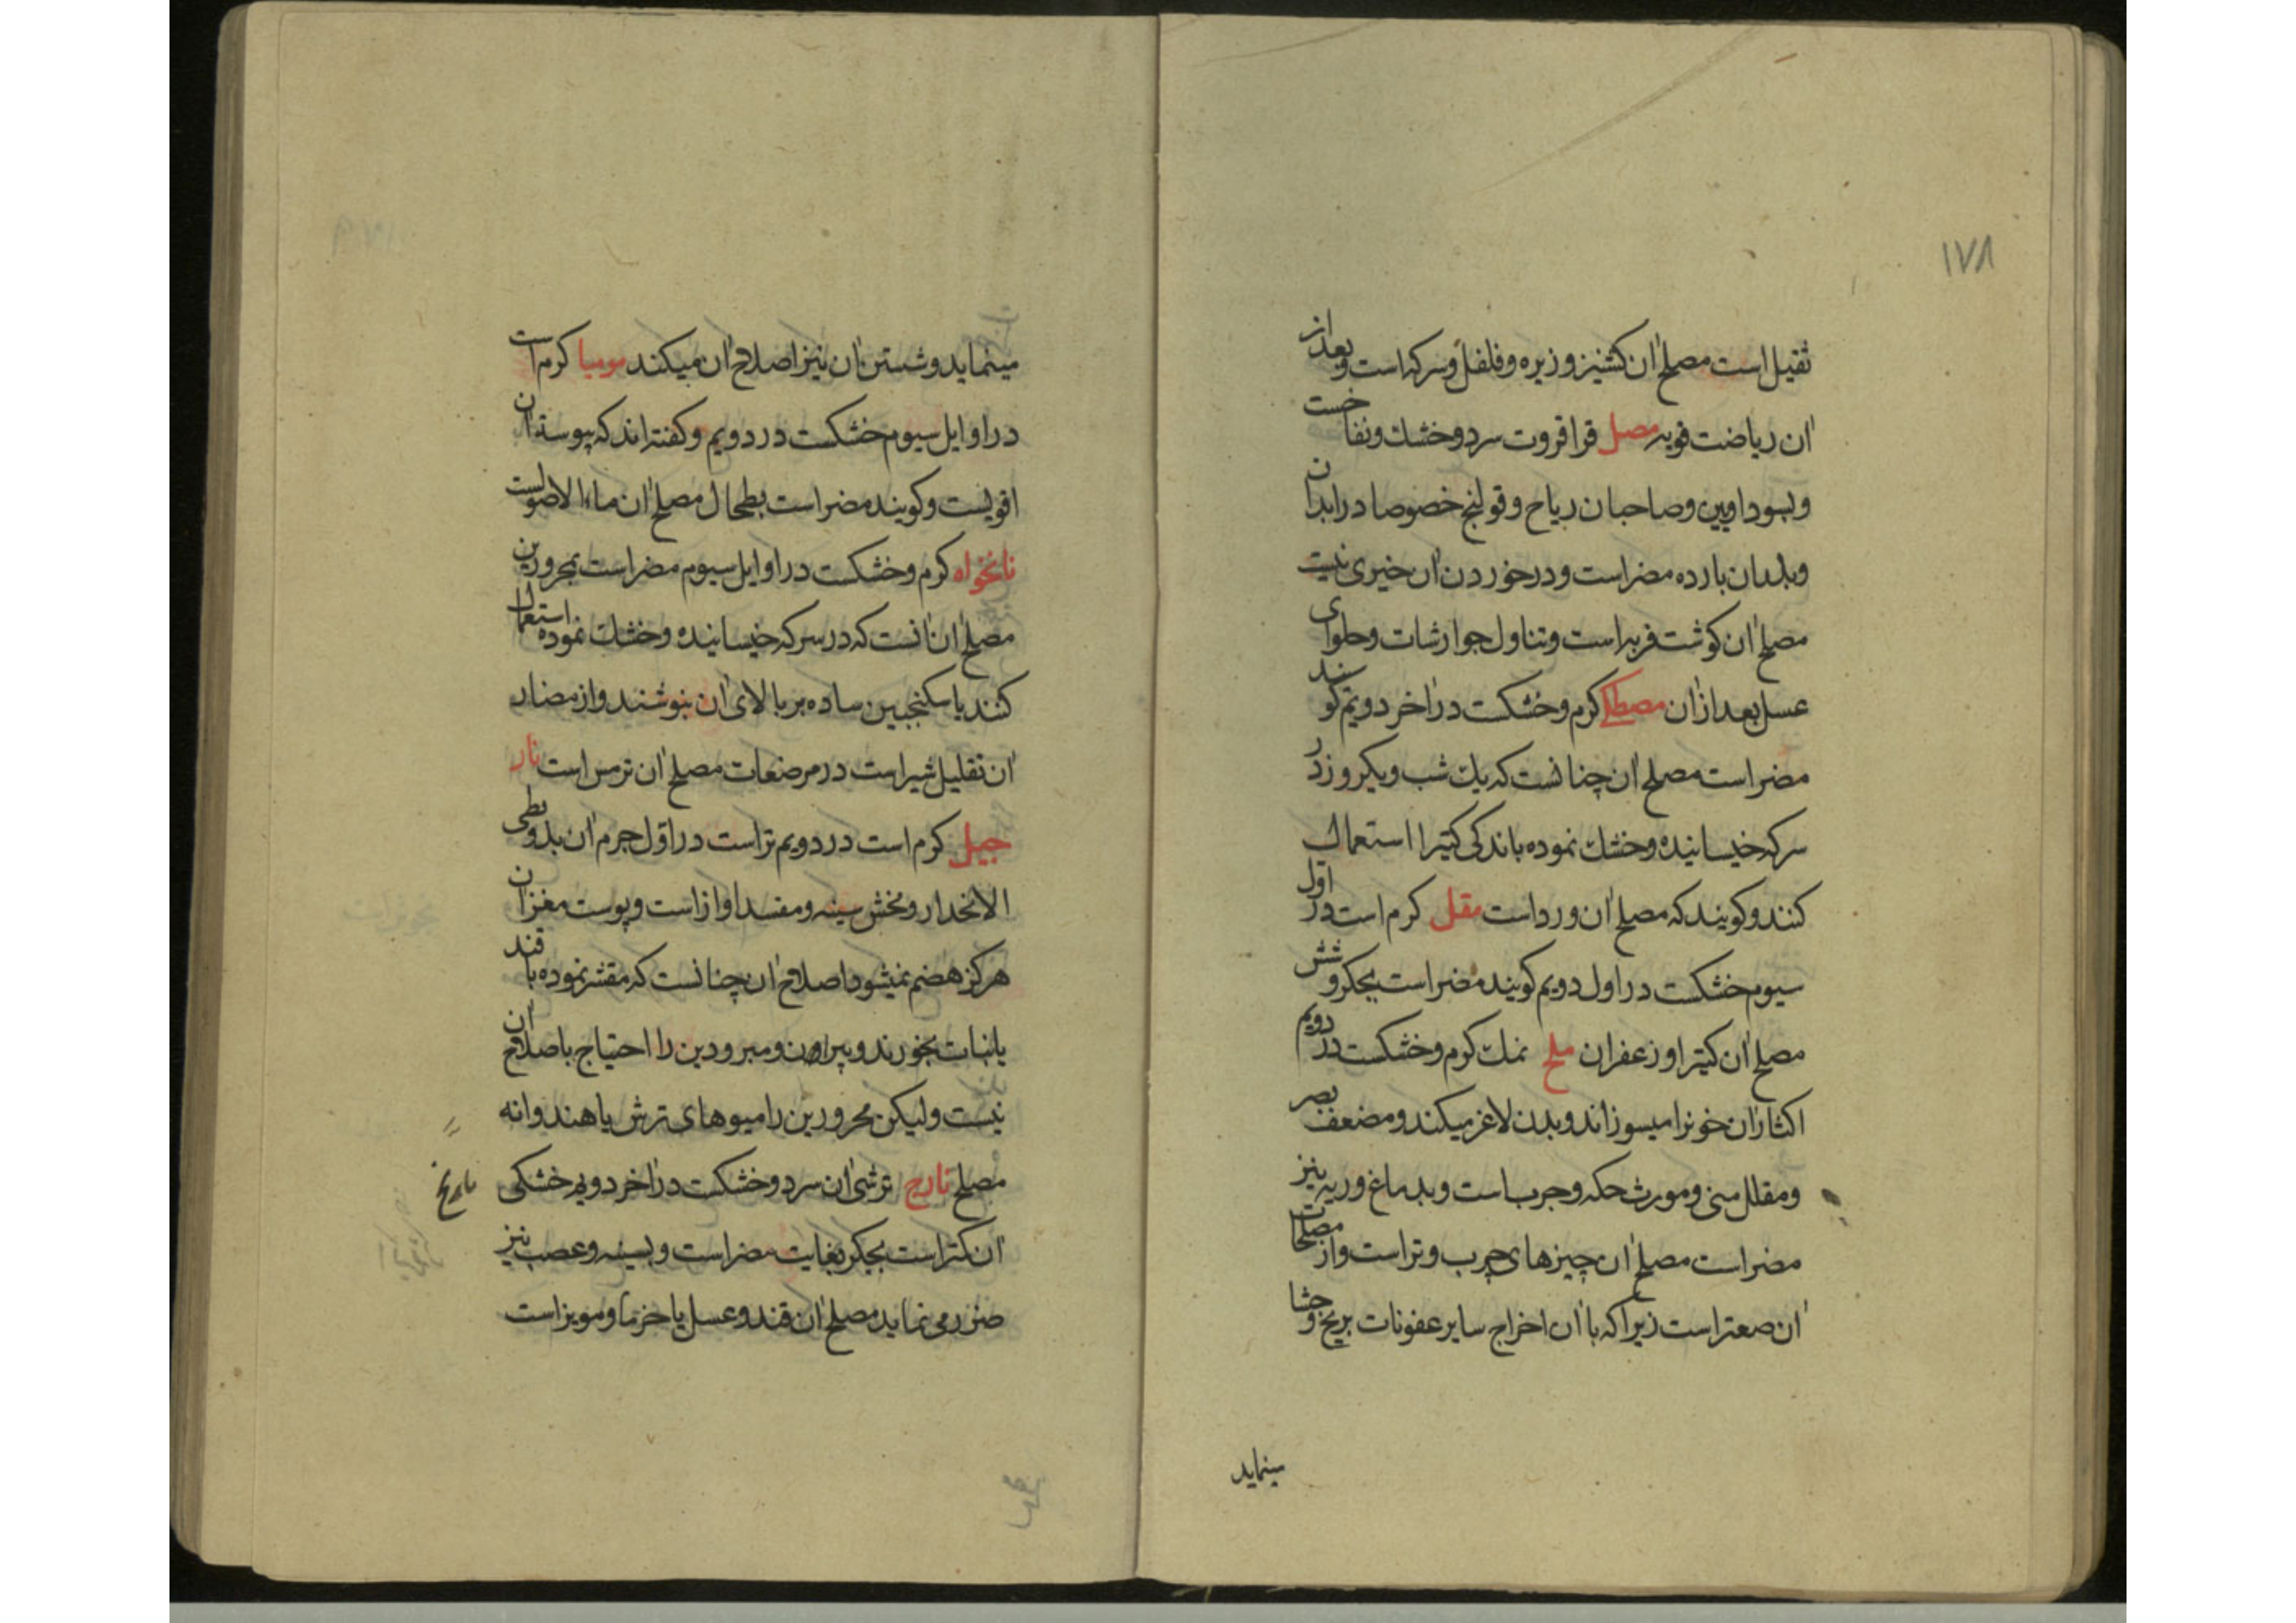 ۱۷۸
ثقیل است مصلح آن کشنیز و زیره و فلفل و سرکه است و بعد از
آن ریاضت قویه مصل قراقروت سرد و خشك و نفاخست
و بسوداویین و صاحبان ریاح و قولنج خصوصا در ابدان
و بلدان بارده مضر است و در خوردن آن خیری نیست
مصلح آن کوشت فربه است و تناول جوارشات و حلوای
عسل بعد از آن مصطکی کرم و خشکست در آخر دویم کویند
مضر است مصلح آن چنانست که یك شب و یکروز در
سرکه خیسانیده و خشك نموده باندکی کتیرا استعمال
کنند و کویند که مصلح آن ورد است مقل کرم است در اول
سیوم خشکست در اول دویم کویند مضر است بجکر و شش
مصلح آن کتیرا و زعفران ملح نمك کرم و خشکست در دویم
اکثار آن خونرا میسوزاند و بدن لاغر میکند و مضعف بصر
و مقلل منی و مورث حکه و جرب است و بدماغ و ریه نیز
مضر است مصلح آن چیزهای چرب و تر است و از مصلحات
آن صعتر است زیرا که با آن اخراج سایر عفونات بریح و جشا
مینماید
مینماید و شستن آن نیز اصلاح آن میکند مومیا کرم است
در اوایل سیوم خشکست در دویم و کفته اند که پیوسته آن
اقویست و کویند مضر است بطحال مصلح آن ماء الاصولست
نانخواه کرم و خشکست در اوایل سیوم مضر است بمحرورین
مصلح آن آنست که در سرکه خیسانیده و خشك نموده استعمال
کنند یا سکنجبین ساده بر بالای آن بنوشند و از مضار
آن تقلیل شیر است در مرضعات مصلح آن ترمس است نار
جیل کرم است در دویم تر است در اول جرم آن بد و بطی
الانحدار و مخش سینه و مفسد اواز است و پوست مغز آن
هرکز هضم نمیشود اصلاح آن چنانست که مقشر نموده با قند
یا نبات بخورند و پیران و مبرودین را احتیاج باصلاح آن
نیست ولیکن محرورین را میوهای ترش یا هندوانه
مصلح نارنج ترشی آن سرد و خشکست در آخر دویم خشکی
نارنج
آن کمتر است بجکر بغایت مضر است و بسینه و عصب نیز
ضرر می نماید مصلح آن قند و عسل یا خرما و مویز است